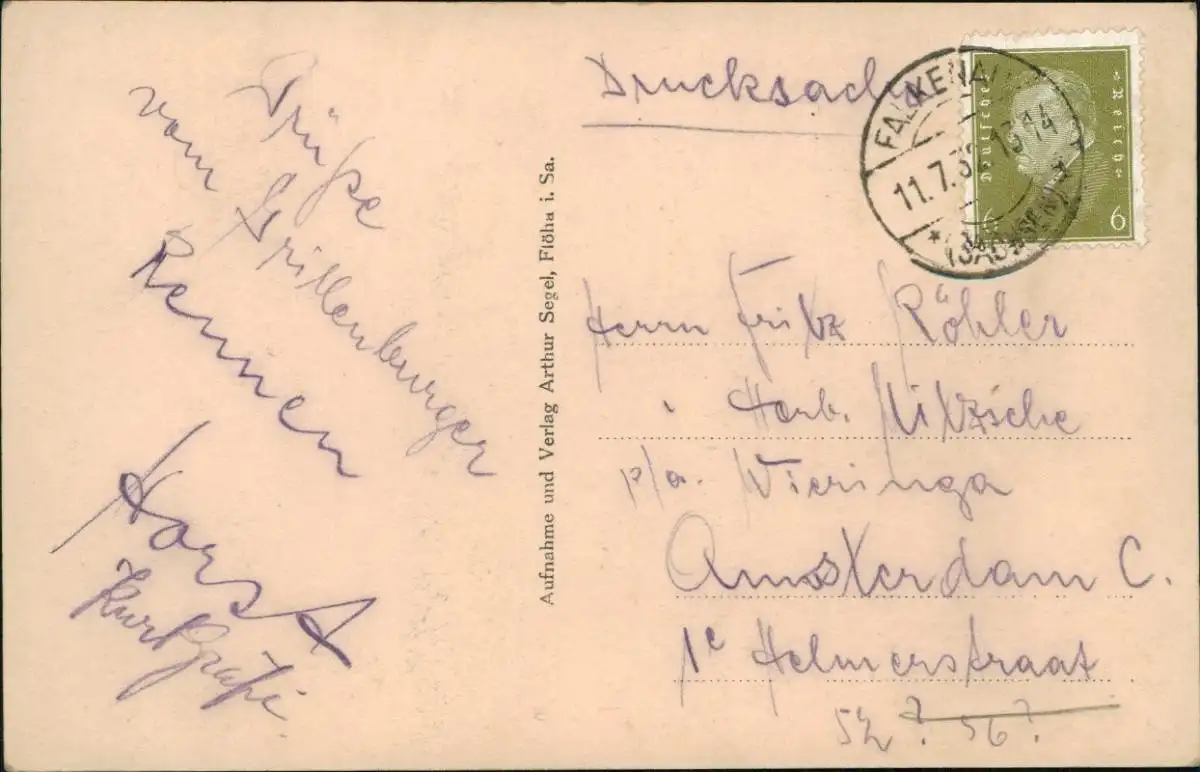 Grüße
vom Grillenburger
Rennen
Horst
Kurt
Aufnahme und Verlag Arthur Segel, Flöha i. Sa.
Drucksache
FALKENAU
11.7.3 13-14
* (SACHSEN)
Deutsches Reich
6 6
Herrn Fritz Röhler
Hamb. Nitzsche
p/a. Wieringa
Amsterdam C.
1e Helmerstraat
52? 56?